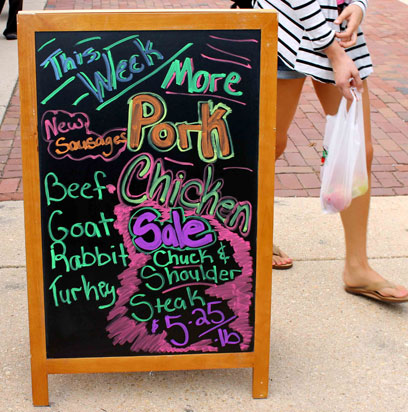 This Week
More
New Sausages
Pork
Chicken
Beef
Goat
Rabbit
Turkey
Sale
Chuck &
Shoulder
Steak
$5.25/lb